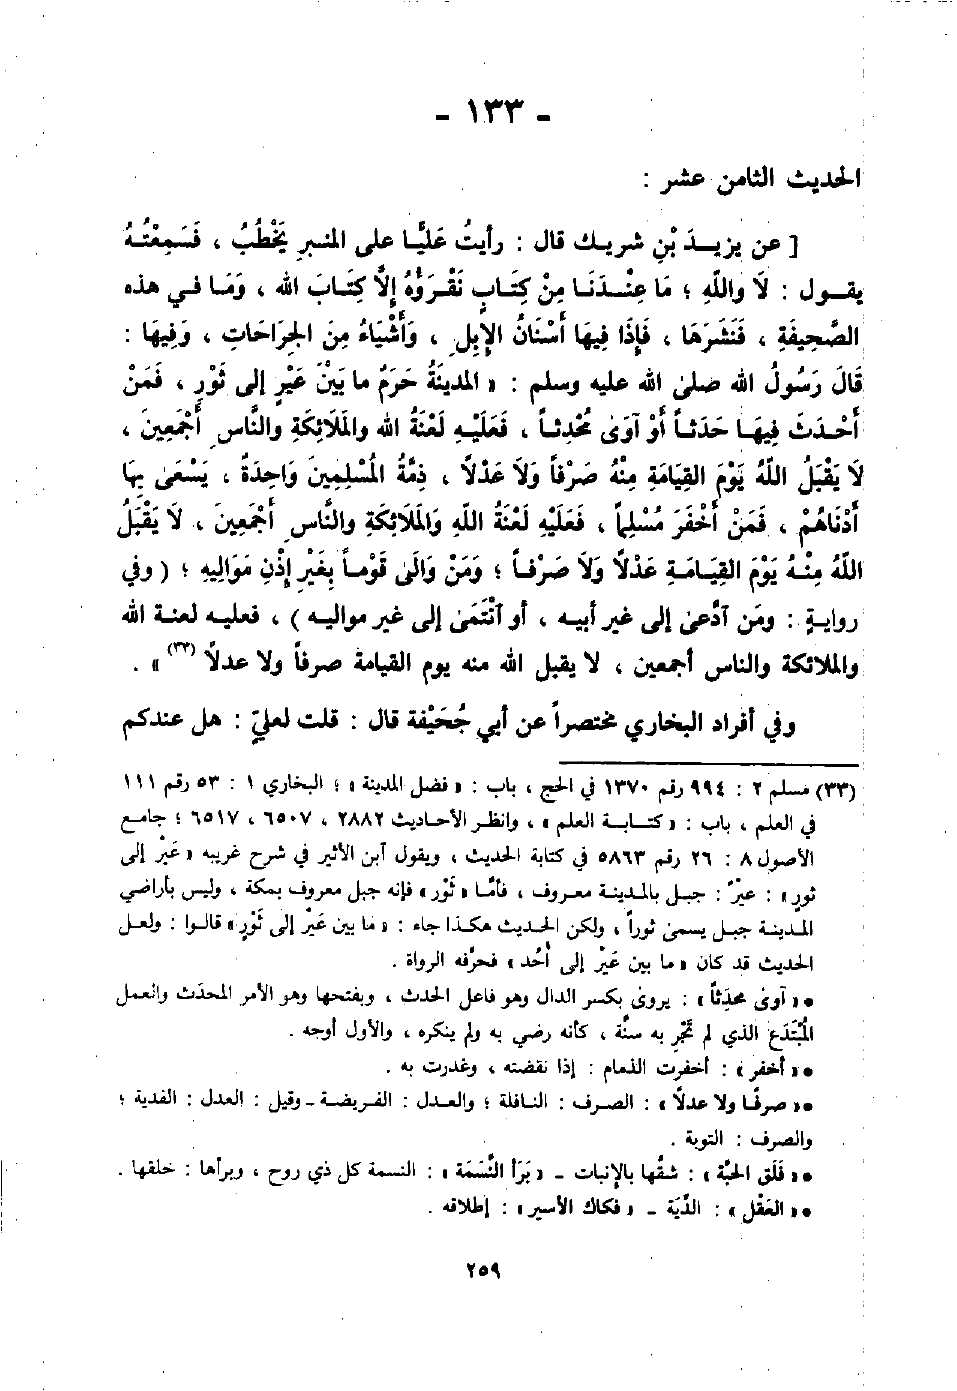 - ١٣٣ -
الحديث الثامن عشر :
[ عن يزيـد بْنِ شريـك قال : رأيتُ عَليًّـا على المنـبرِ يَخْطُبُ ، فَسَمِعْتُـهُ
يقـول : لَا واللَّهِ ؛ مَا عِنْـدَنَـا مِنْ كِتَـابٍ نَقْـرَؤُهُ إلَّا كِتَـابَ الله ، وَمَـا فـي هذه
الصَّحِيفَةِ ، فَنَشَرَهَا ، فَإذَا فِيهَا أَسْنَانُ الإِبِلِ ، وَأَشْيَاءُ مِنَ الجِرَاحَاتِ ، وَفِيهَا :
قَالَ رَسُولُ الله صلى الله عليه وسلم : « المدينَةُ حَرَمٌ ما بَيْنَ عَيْرٍ إلى ثَوْرٍ ، فَمَنْ
أَحْـدَثَ فِيهَـا حَدَثـاً أَوْ آوَى مُحْدِثـاً ، فَعَلَيْـهِ لَعْنَةُ الله والمَلَائِكَةِ والنَّاسِ أَجْمَعِينَ ،
لَا يَقْبَلُ اللَّهُ يَوْمَ القِيَامَةِ مِنْهُ صَرْفاً وَلاَ عَدْلًا ، ذِمَّةُ الْمُسْلِمِينَ وَاحِدَةٌ ، يَسْعَى بِهَا
أَدْنَاهُمْ ، فَمَنْ أَخْفَرَ مُسْلِماً ، فَعَلَيْهِ لَعْنَةُ اللَّهِ وَالمَلَائِكَةِ والنَّاسِ أَجْمَعِينَ ، لَا يَقْبَلُ
اللَّهُ مِنْـهُ يَوْمَ القِيَـامَـةِ عَدْلًا وَلاَ صَرْفـاً ؛ وَمَنْ وَالَى قَوْمـاً بِغَيْرِ إذْنِ مَوَالِيهِ ؛ ( وفي
روايـةٍ : ومَن آدَّعىٰ إلى غير أبيـه ، أو آنْتَمَىٰ إلى غير مواليـه ) ، فعليـه لعنـة الله
والملائكة والناس أجمعين ، لا يقبل الله منه يوم القيامة صرفاً ولا عدلًا (٣٣) » .
وفي أفراد البخاري مختصراً عن أبي جُحَيْفة قال : قلت لعليّ : هل عندكم
(٣٣) مسلم ٢ : ٩٩٤ رقم ١٣٧٠ في الحج ، باب : « فضل المدينة » ؛ البخاري ١ : ٥٣ رقم ١١١
في العلم ، باب : « كتـابـة العلم » ، وانظـر الأحـاديث ٢٨٨٢ ، ٦٥٠٧ ، ٦٥١٧ ؛ جامـع
الأصول ٨ : ٢٦ رقم ٥٨٦٣ في كتابة الحديث ، ويقول آبن الأثير في شرح غريبه « عَيْرٌ إلى
ثور » : عيرٌ : جبـل بالمـدينـة معـروف ، فأمَّـا « ثَوْر » فإنه جبل معروف بمكة ، وليس بأراضي
المـدينـة جبـل يسمىٰ ثوراً ، ولكن الحـديث هكـذا جاء : « ما بين عَيْرٌ إلى ثَوْرٍ » قالـوا : ولعـل
الحديث قد كان « ما بين عَيْرٌ إلى أُحُد » فحرَّفه الرواة .
• « آوىٰ محدِثاً » : يروىٰ بكسر الدال وهو فاعل الحدث ، وبفتحها وهو الأمر المحدَث والعمل
المُبْتَدَع الذي لم تَجْرِ به سنَّة ، كأنه رضي به ولم ينكره ، والأول أوجه .
• « أخفر » : أخفرت الذمام : إذا نقضته ، وغدرت به .
• « صرفًـا ولا عدلًا » : الصـرف : النـافلة ؛ والعـدل : الفـريضـة - وقيل : العدل : الفدية ؛
والصرف : التوبة .
• « فَلَق الحبَّة » : شقَّها بالإنبات - « بَرَأ النَّسَمَة » : النسمة كل ذي روح ، وبرأها : خلقها .
• « العَقْل » : الدِّيَة - « فكاك الأسير » : إطلاقه .
٢٥٩